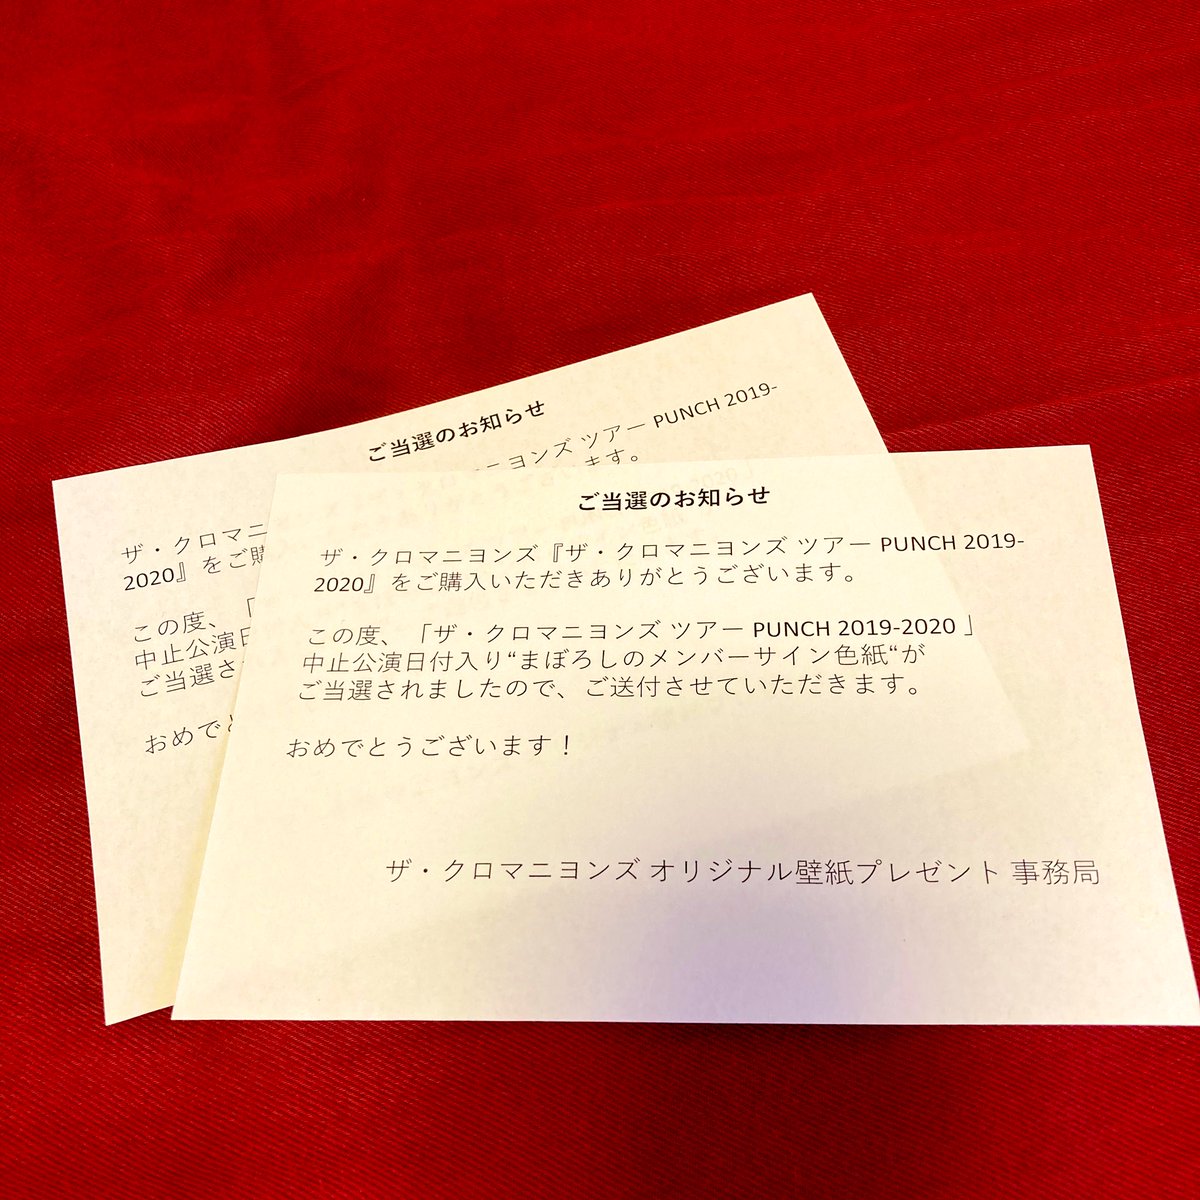 ご当選のお知らせ
ザ・クロマニヨンズ ツアー PUNCH 2019-
ザ・クロマニ
2020』をご購
この度、「
中止公演日
ご当選さ
おめでと
ご当選のお知らせ
ザ・クロマニヨンズ『ザ・クロマニヨンズ ツアー PUNCH 2019-
2020』をご購入いただきありがとうございます。
この度、「ザ・クロマニヨンズ ツアー PUNCH 2019-2020 」
中止公演日付入り“まぼろしのメンバーサイン色紙“が
ご当選されましたので、ご送付させていただきます。
おめでとうございます！
ザ・クロマニヨンズ オリジナル壁紙プレゼント 事務局